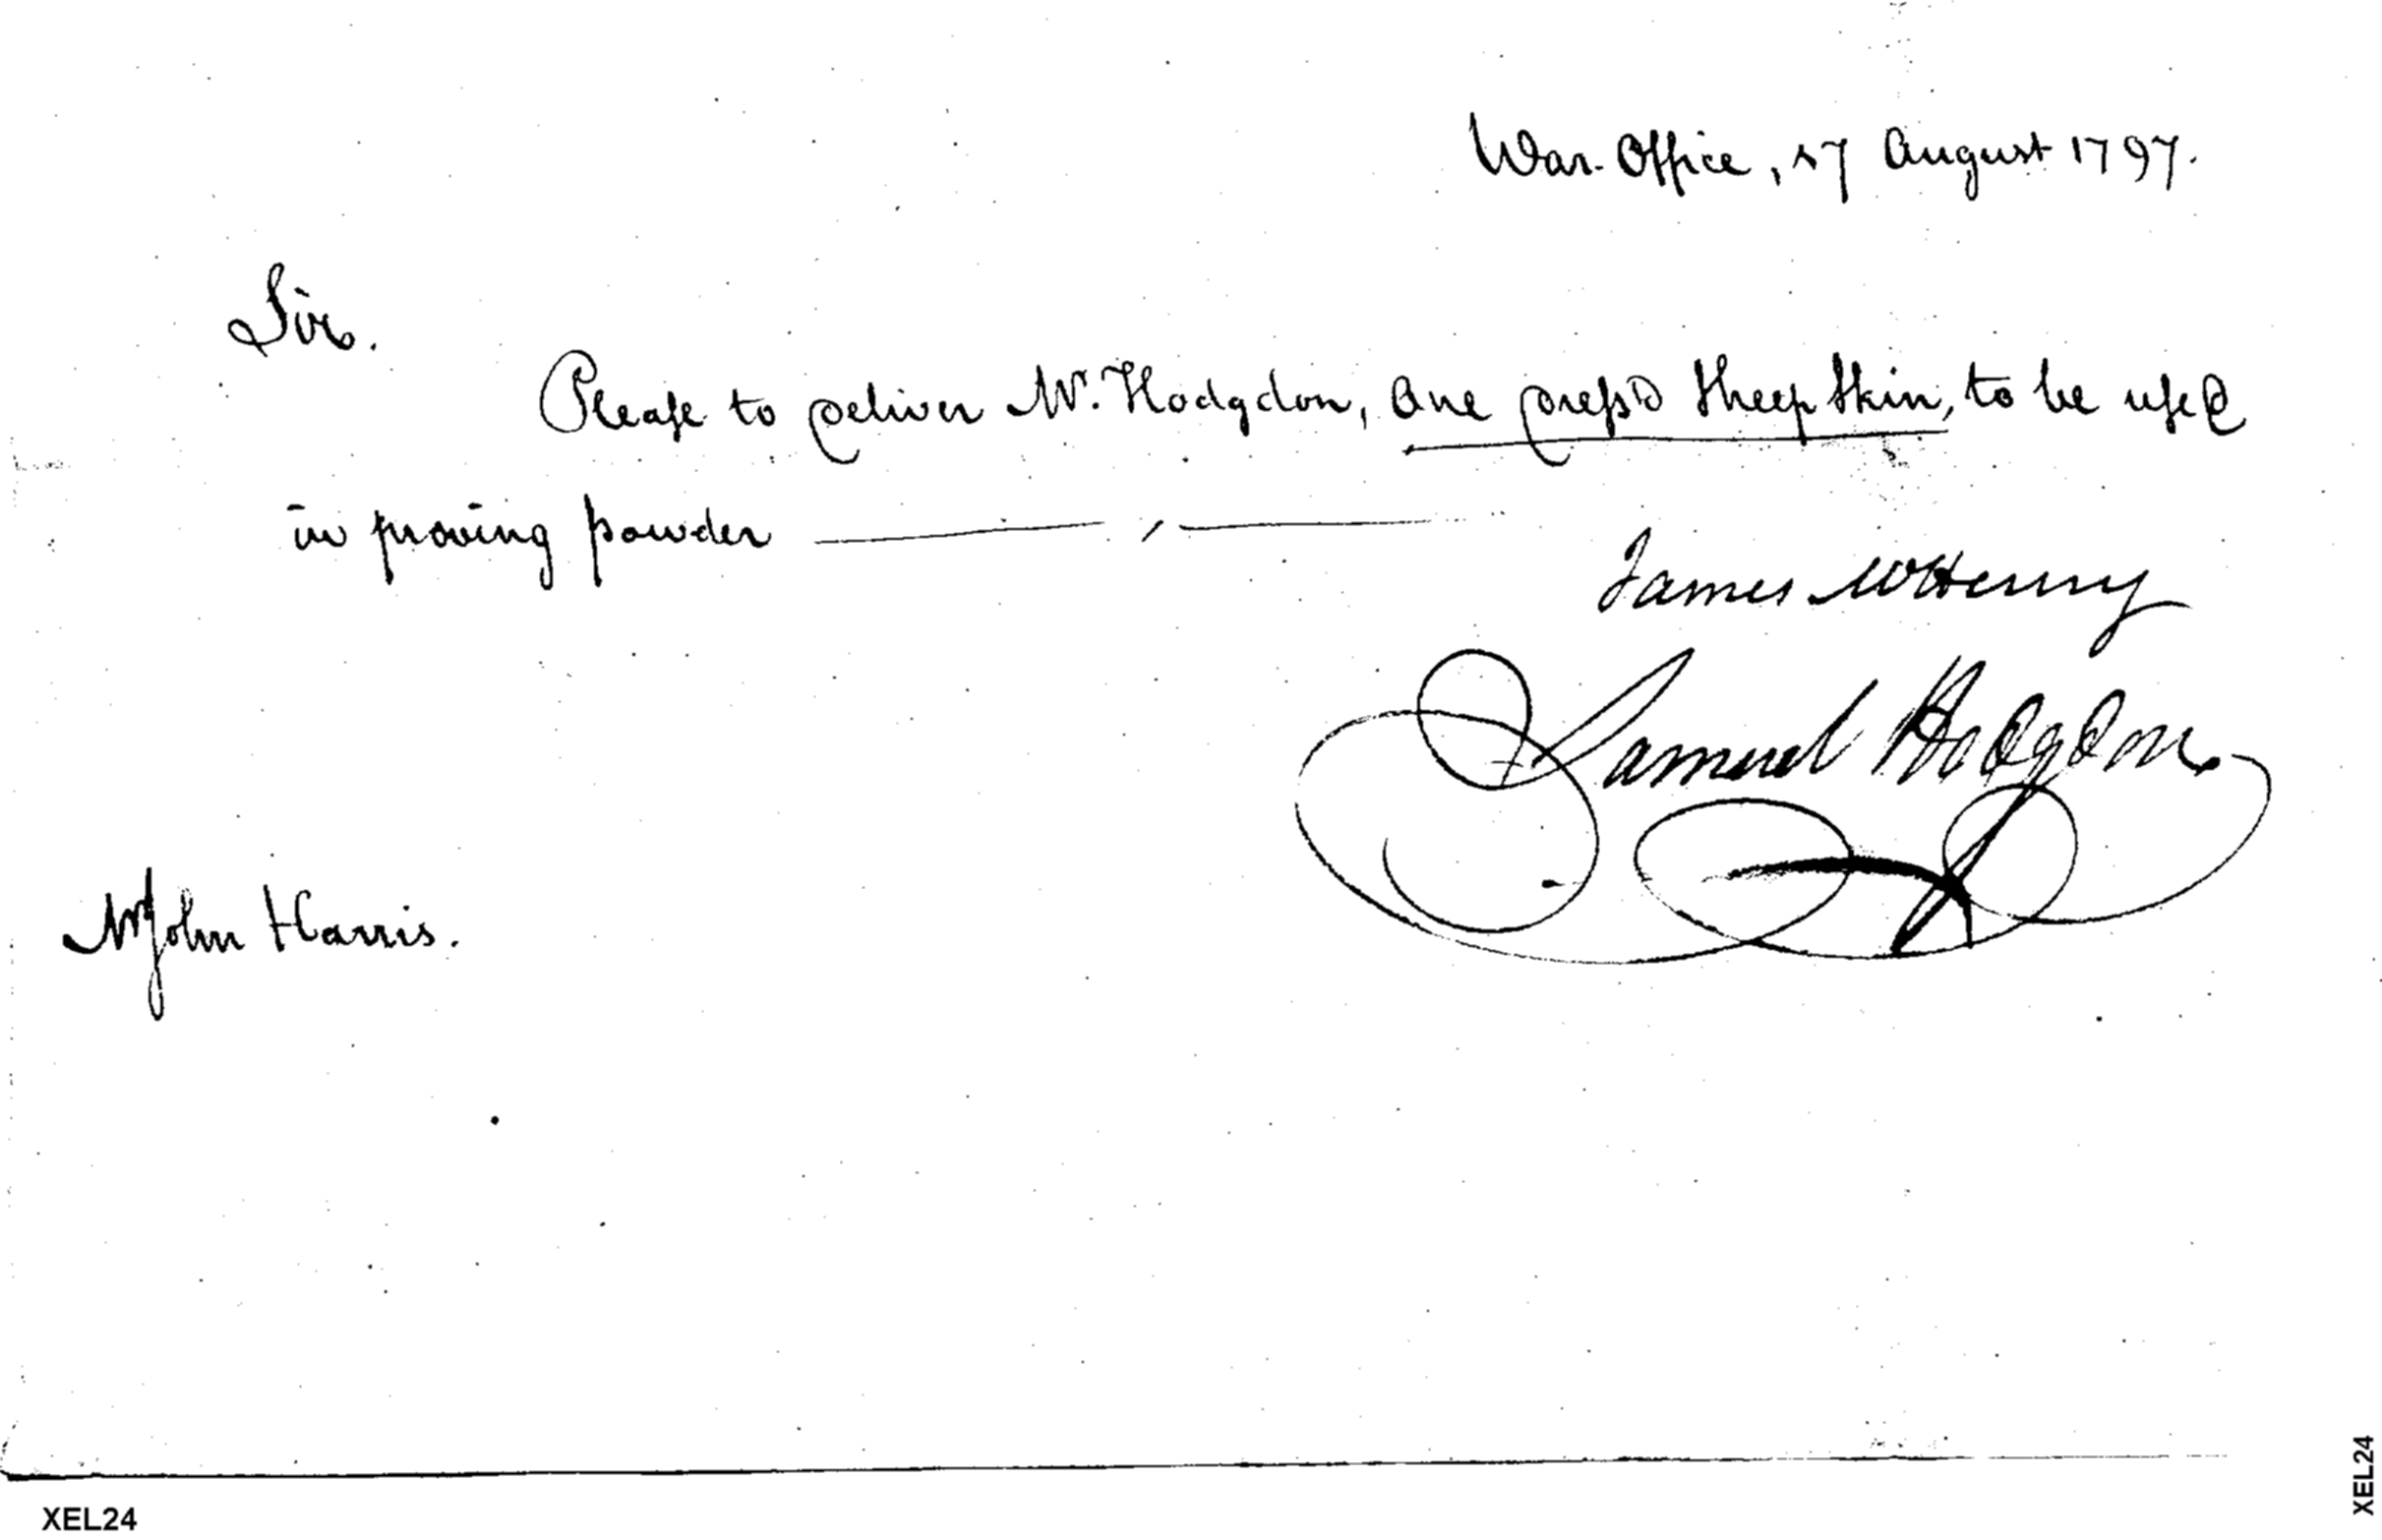 War-Office, 17 August 1797.
Sir.
Please to deliver Mr. Hodgdon, One dress'd Sheep Skin, to be used
in proving powder
James McHenry
Samuel Hodgdon
Mr John Harris.
XEL24
XEL24